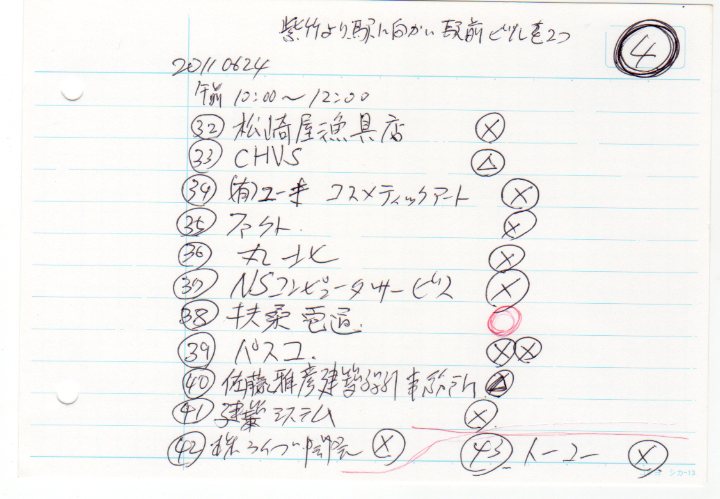 紫竹より駅に向かい駅前ビルを2つ
④
20110624
午前 10:00～12:00
㉜ 松崎屋漁具店 ⓧ
㉝ CHVS △
㉞ (有)ユーキ コスメティックアート ⓧ
㉟ ファクト. ⓧ
㊱ 丸北 ⓧ
㊲ NSコンピュータサービス ⓧ
㊳ 扶桑電通. ○
㊴ パスコ. ⓧⓧ
㊵ 佐藤雅彦建築設計事務所 △
㊶ 建築システム ⓧ
㊷ 株 ライブ ⓧ ㊸ トーコー ⓧ